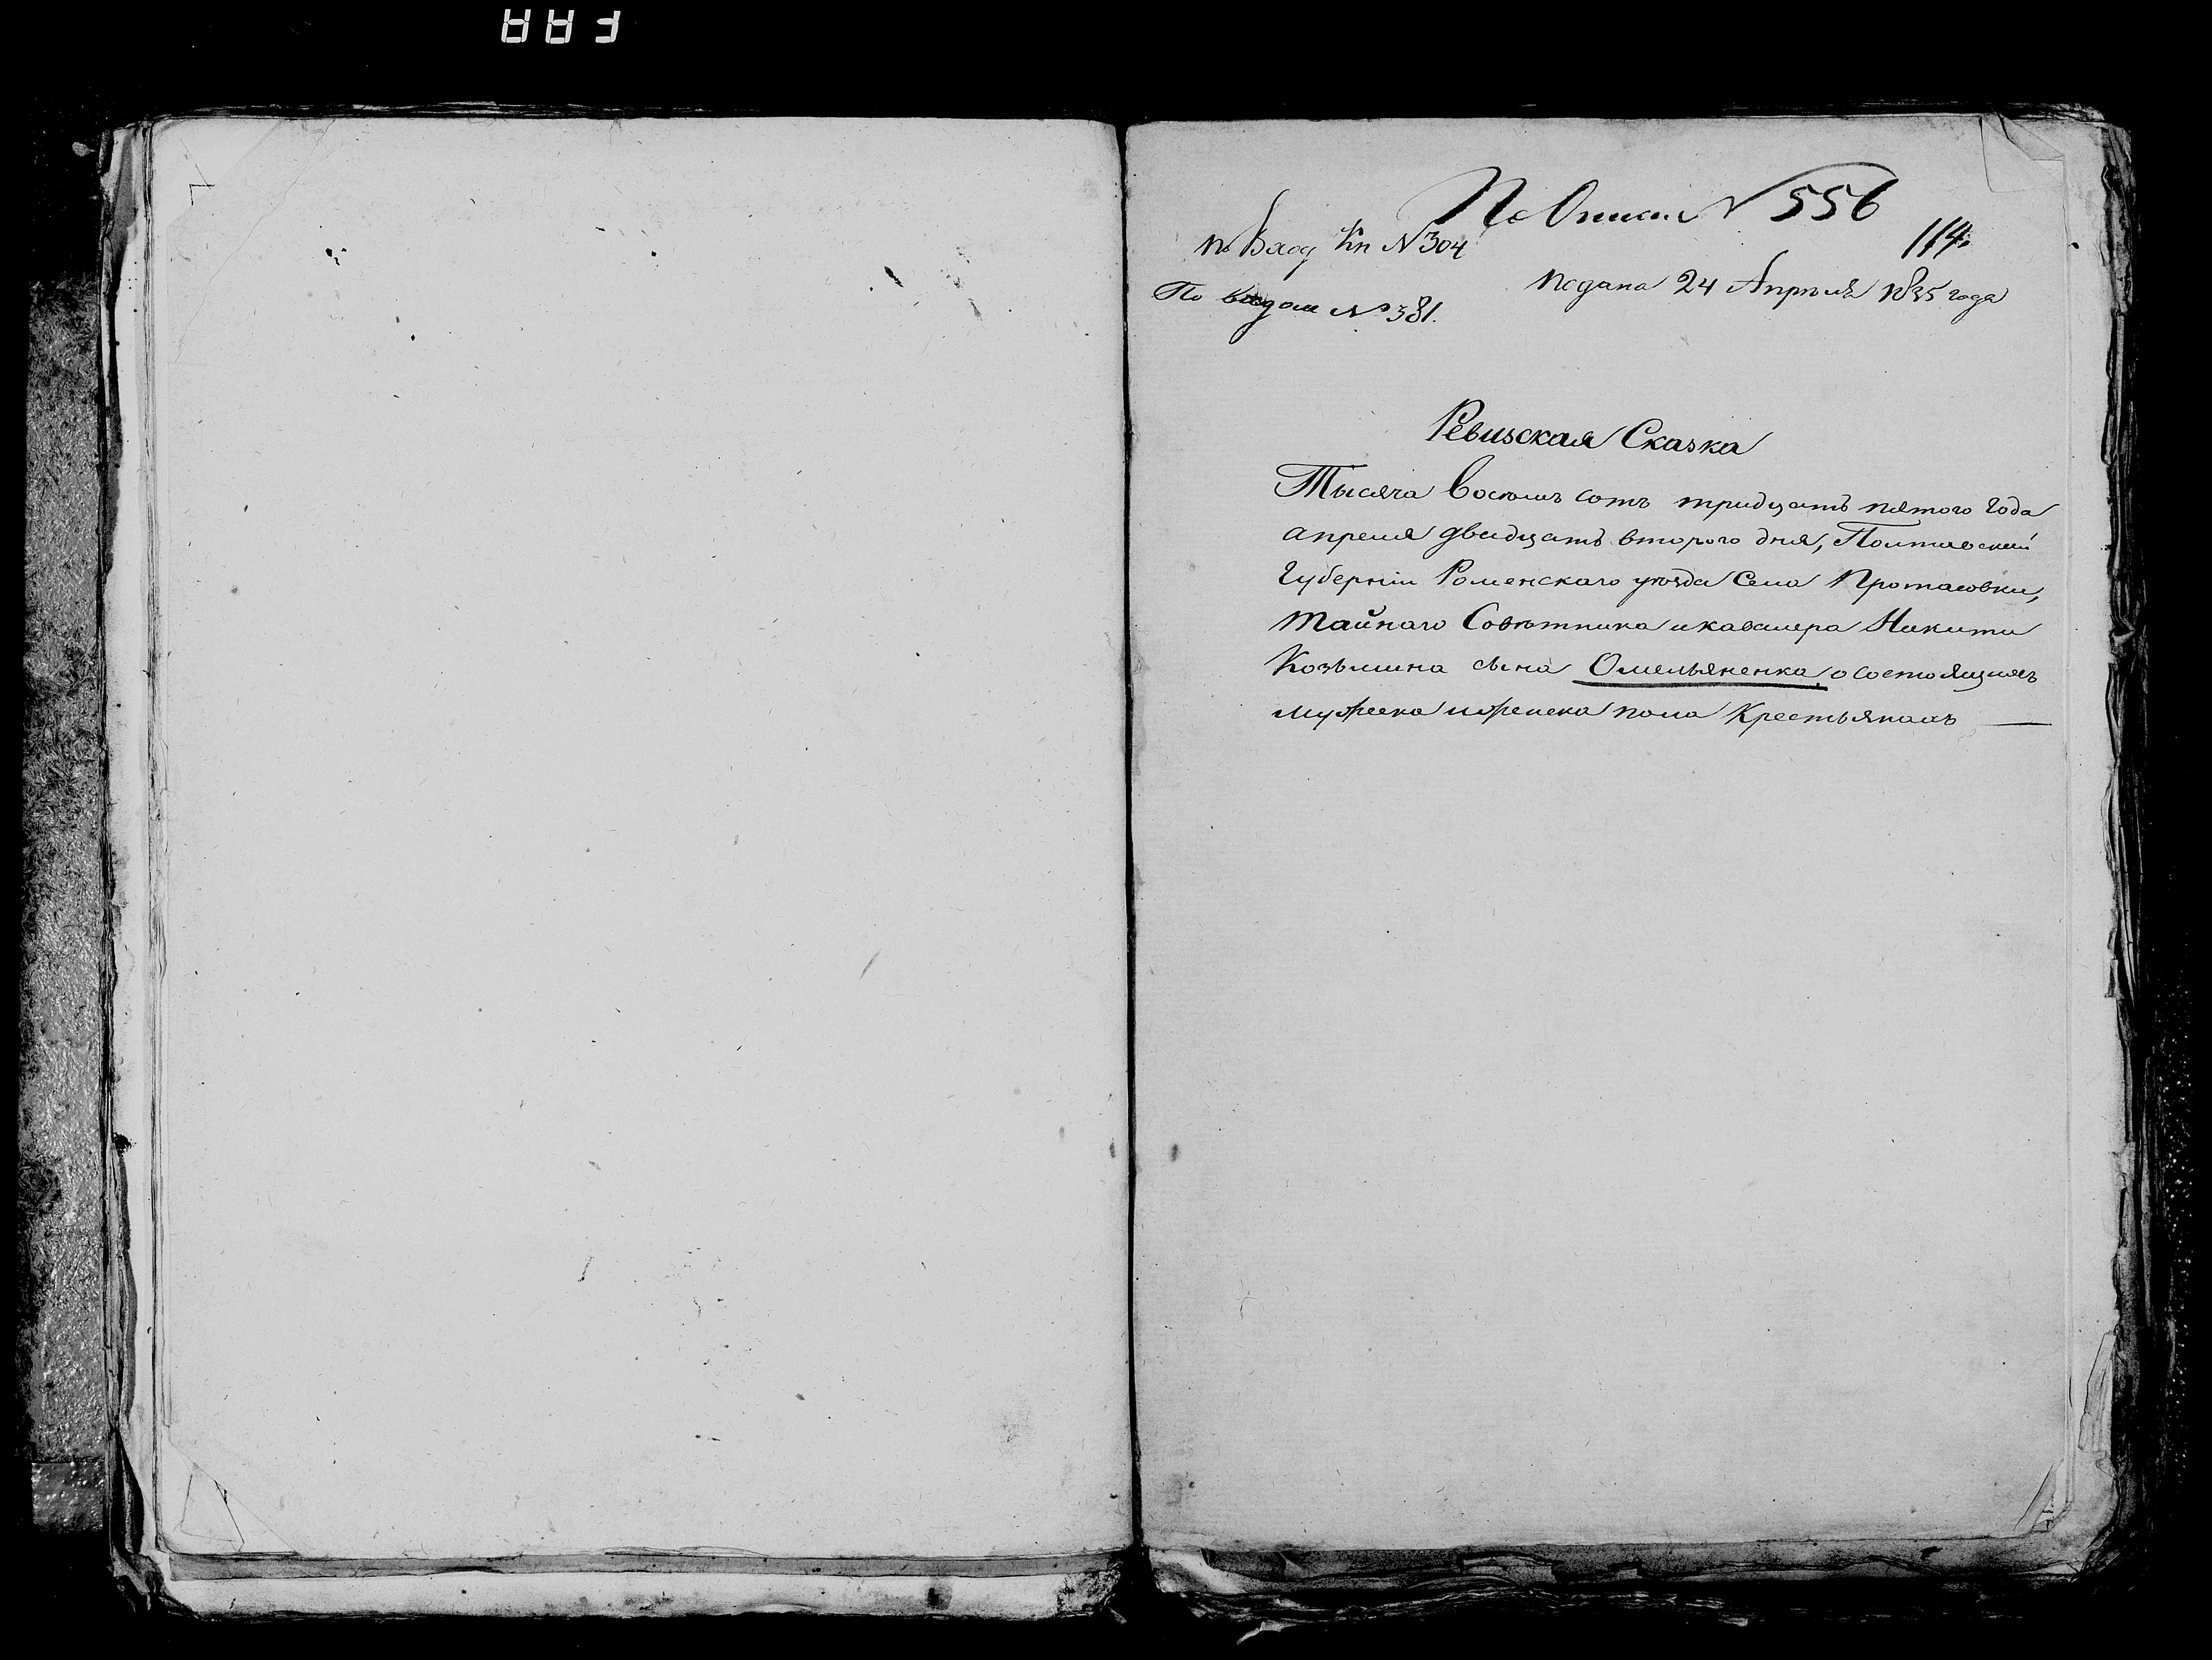 По Описи № 556
по Вход Кн № 304
114.
подана 24 Апреля 1835 года
По № 381.
Ревизская Сказка
Тысяча восемь сотъ тридцать пятого года
апреля двадцать второго дня, Полтавской
Губернiи Роменскаго уѣзда Села Протасовки,
тайнаго Совѣтника и кавалера Никити
Козьмина сына Омельяненка о состоящихъ
мужеска и женска пола Крестьянахъ —